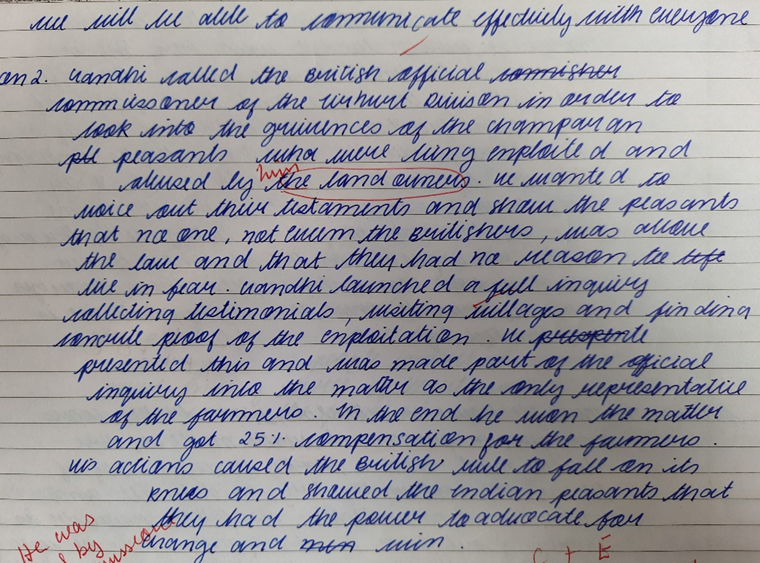 we will be able to communicate effectively with everyone
on 2. Gandhi called the British official comisher
commissoner of the Tirhut Division in order to
look into the griviences of the champaran
peasants who were being exploited and
him
abused by the land owners. He wanted to
voice out their testaments and show the peasants
that no one, not even the Britishers, was above
the law and that they had no reason to
live in fear. Gandhi launched a full inquiry
collecting testimonials, visiting villages and finding
concrete proof of the exploitation. He
presented this and was made part of the official
inquiry into the matter as the only representative
of the farmers. In the end he won the matter
and got 25% compensation for the farmers.
His actions caused the British rule to fall on its
knees and showed the Indian peasants that
they had the power to advocate for
He was
change and win.
by
C + E